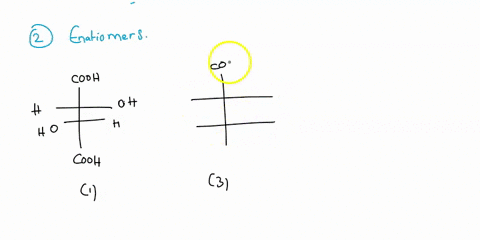 2 Enatiomers.
COOH
H OH
HO H
COOH
(1)
CO
(3)